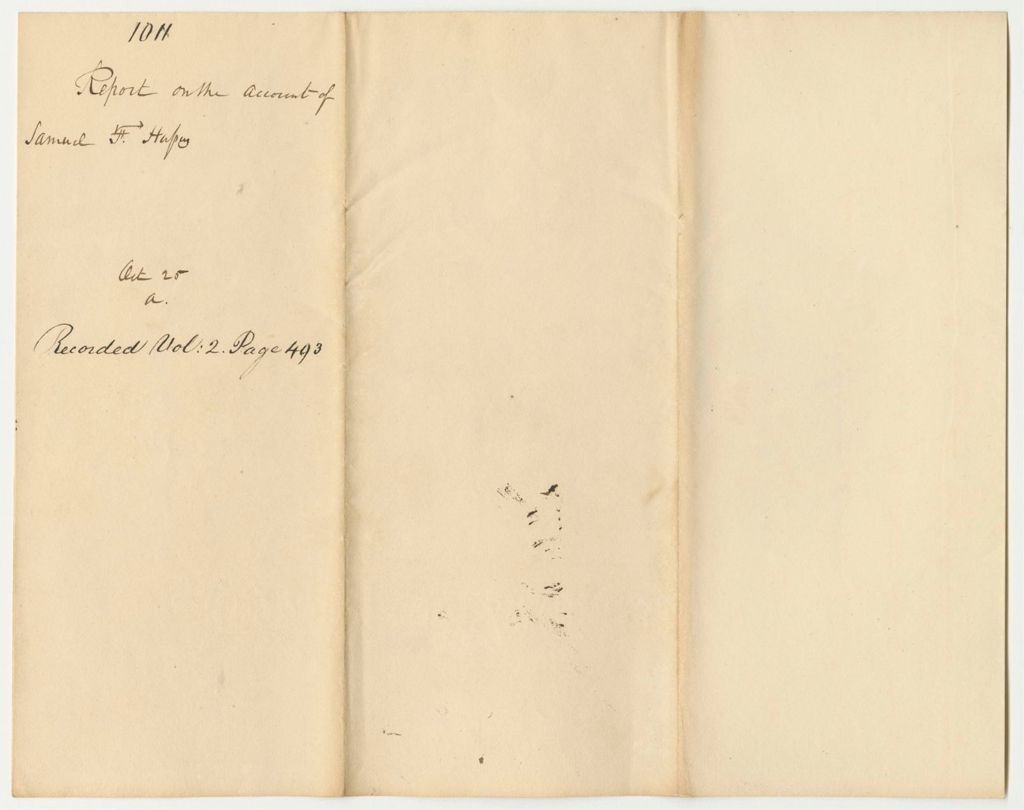 1011
Report on the account of
Samuel F. Hussey
Oct 25
a.
Recorded Vol: 2. Page 493